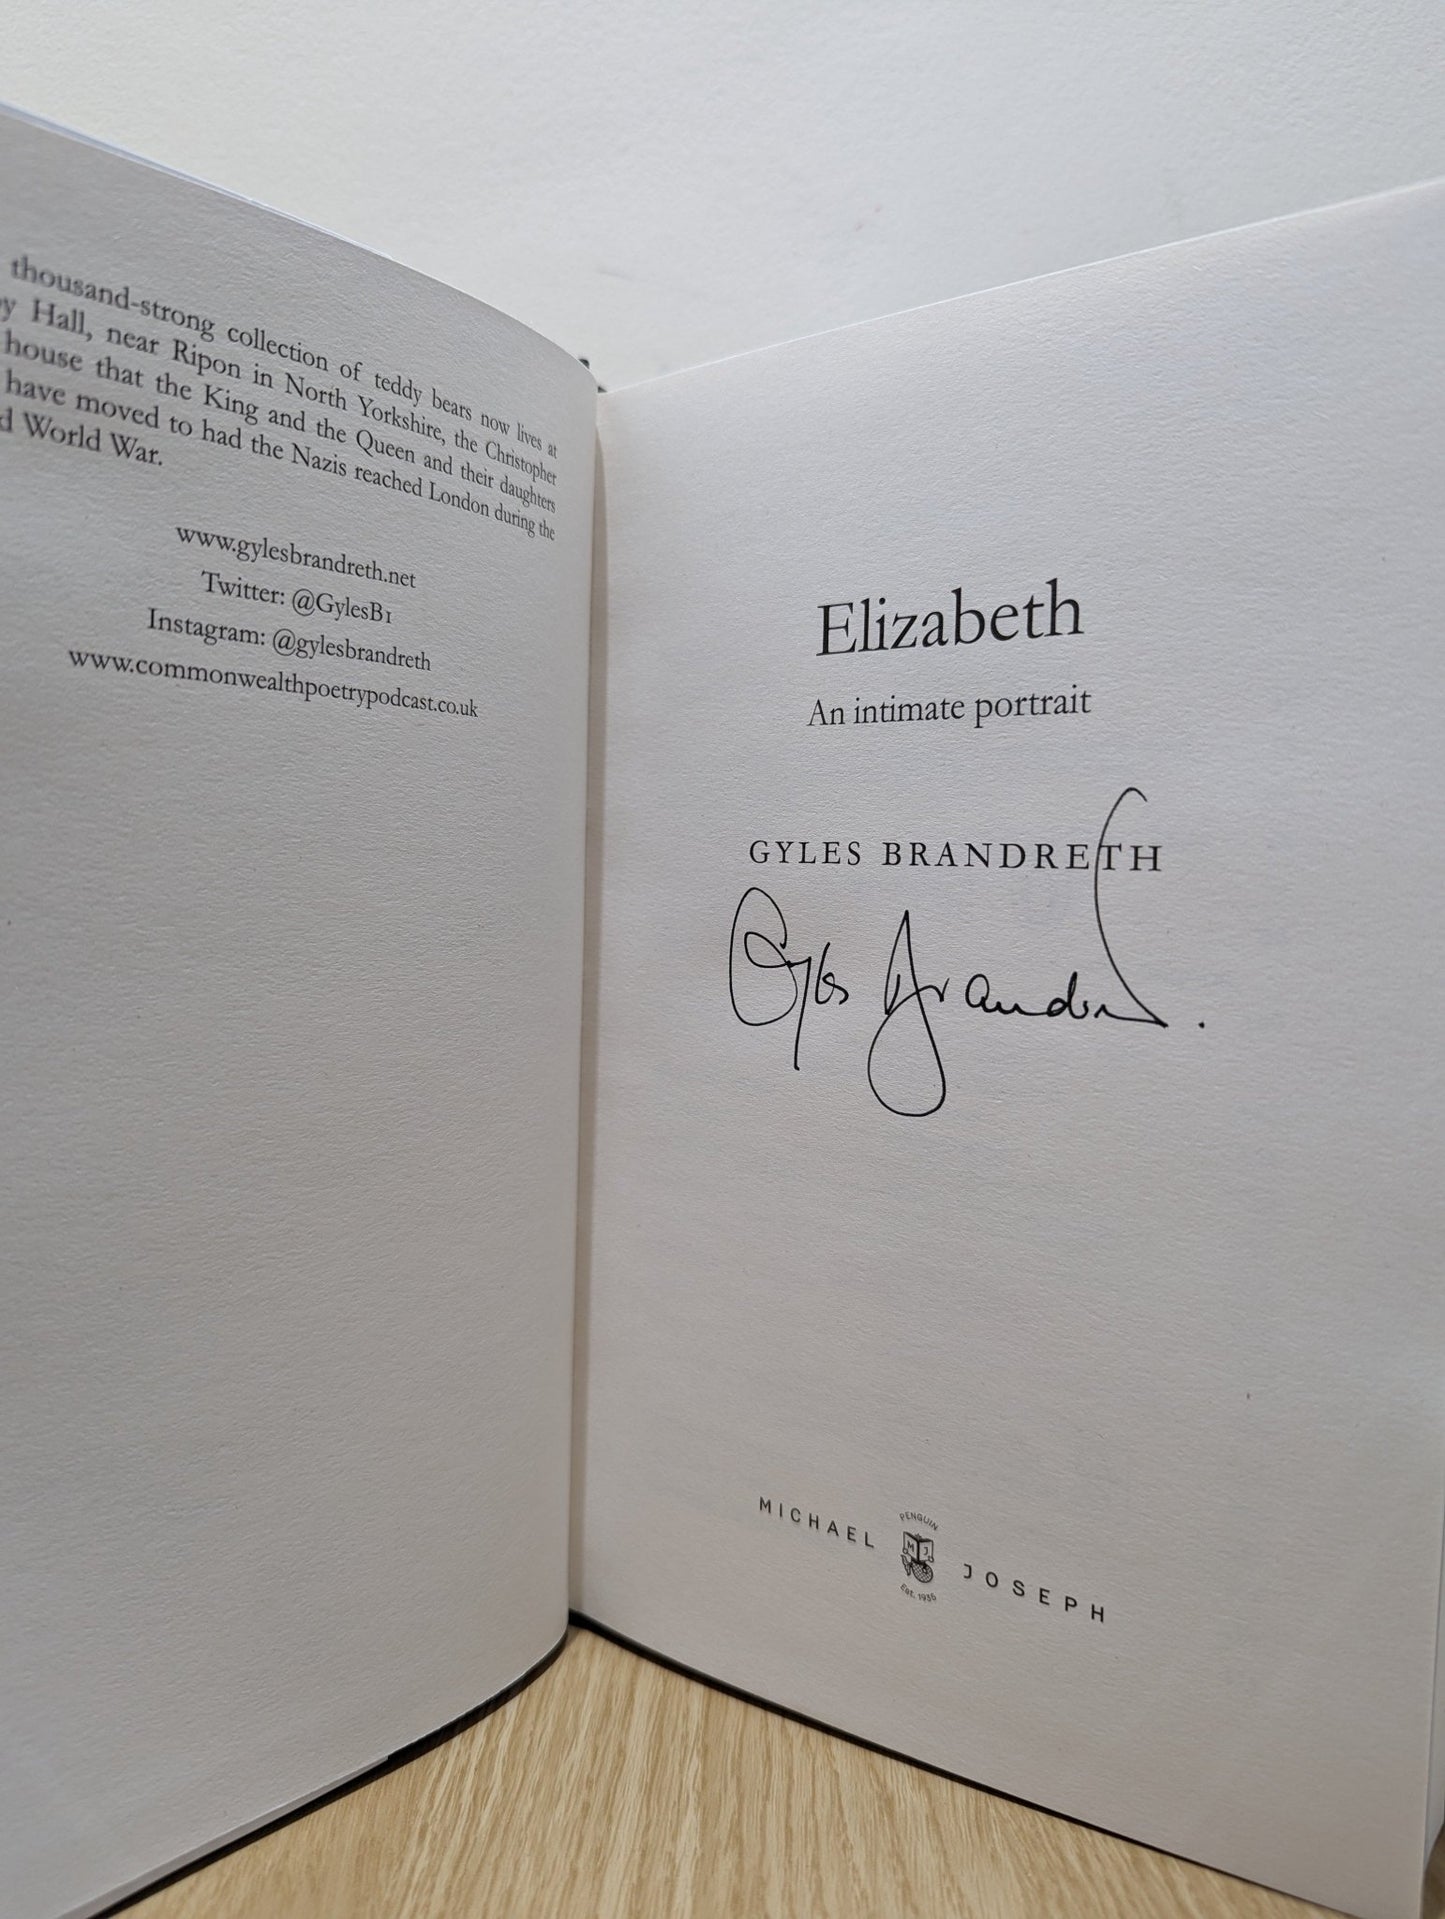 thousand-strong collection of teddy bears now lives at
y Hall, near Ripon in North Yorkshire, the Christopher
house that the King and the Queen and their daughters
have moved to had the Nazis reached London during the
d World War.
www.gylesbrandreth.net
Twitter: @GylesB1
Instagram: @gylesbrandreth
www.commonwealthpoetrypodcast.co.uk
Elizabeth
An intimate portrait
GYLES BRANDRETH
Gyles Brandreth.
MICHAEL JOSEPH
PENGUIN
M J
Est. 1935